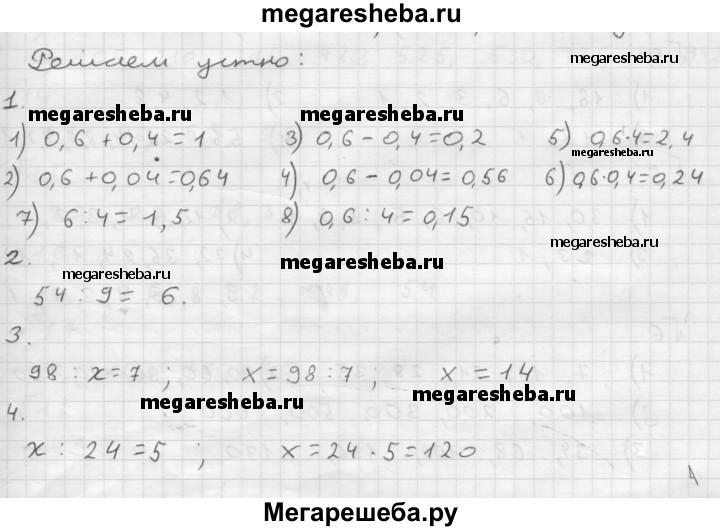 megaresheba.ru
Решаем устно:
megaresheba.ru
1.
megaresheba.ru
megaresheba.ru
1) 0,6 + 0,4 = 1 3) 0,6 - 0,4 = 0,2 5) 0,6·4 = 2,4
megaresheba.ru
2) 0,6 + 0,04 = 0,64 4) 0,6 - 0,04 = 0,56 6) 0,6·0,4 = 0,24
7) 6 : 4 = 1,5 8) 0,6 : 4 = 0,15
megaresheba.ru
2.
megaresheba.ru
megaresheba.ru
54 : 9 = 6.
3.
98 : x = 7 ; x = 98 : 7 ; x = 14
megaresheba.ru
megaresheba.ru
4.
x : 24 = 5 ; x = 24 · 5 = 120
Мегарешеба.ру